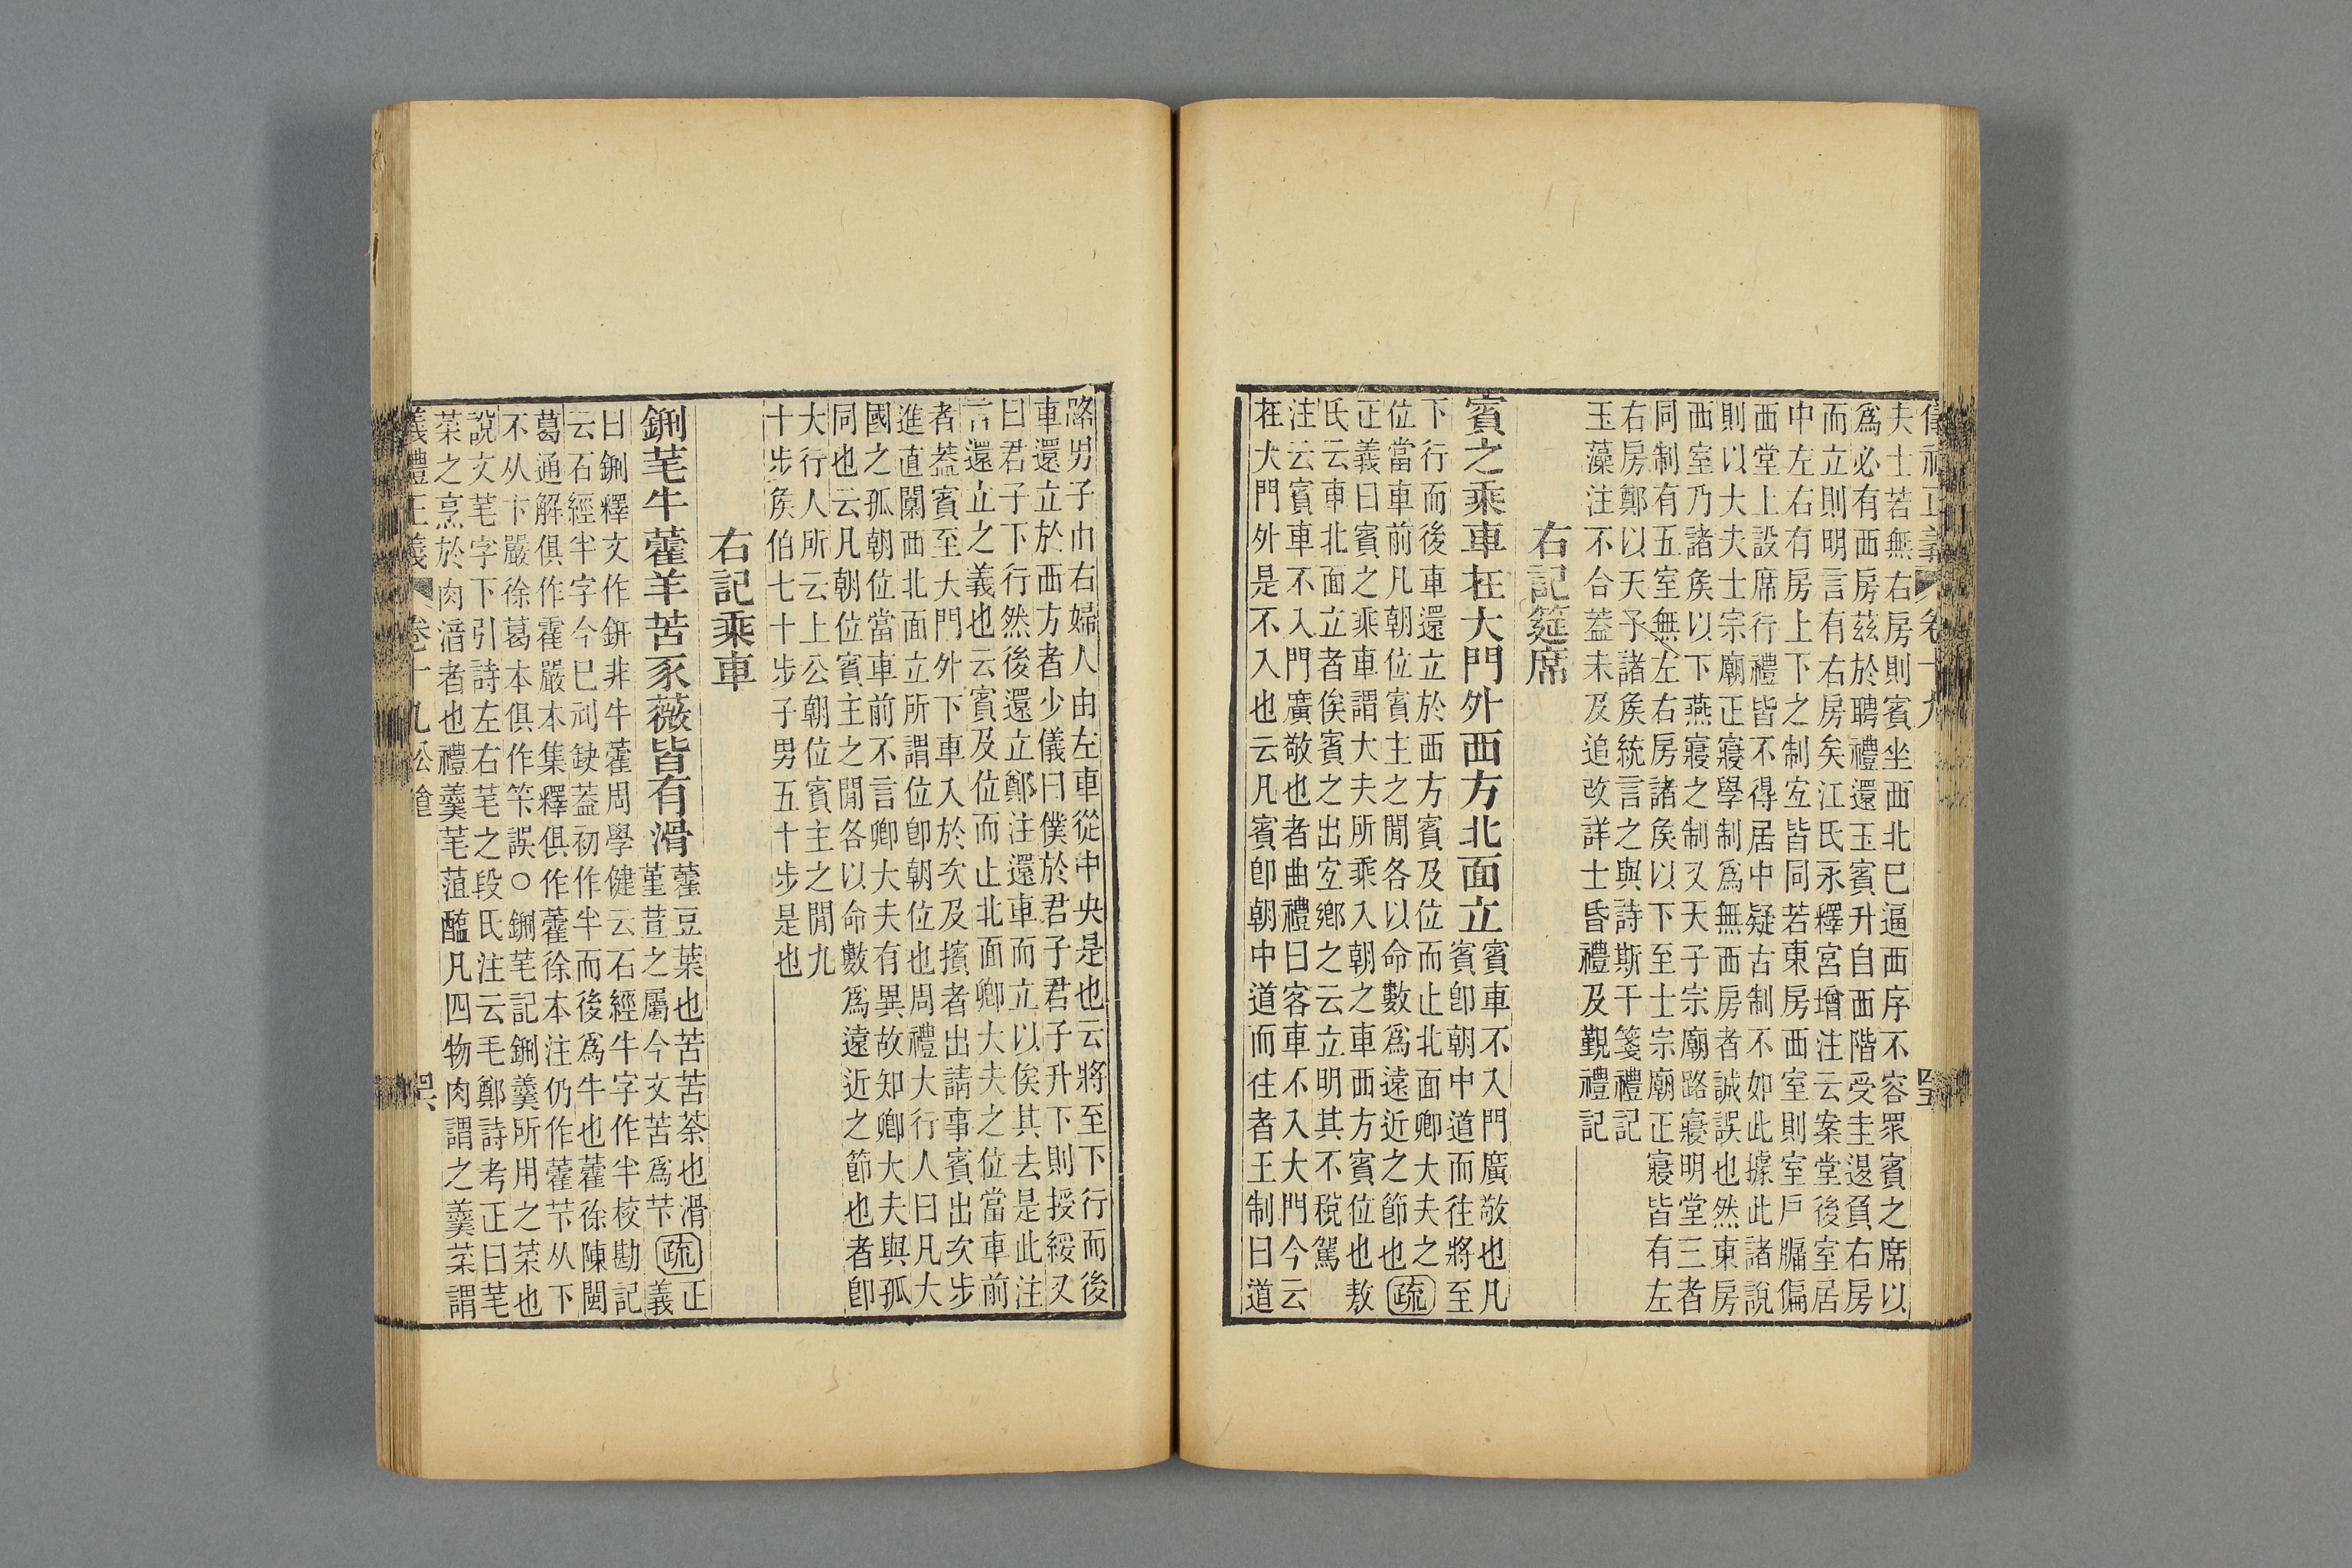 儀禮正義 卷十九
夫士若無右房則賓坐西北已逼西序不容眾賓之席以
爲必有西房茲於聘禮還玉賓升自西階受圭退負右房
而立則明言有右房矣江氏永釋宮增注云案堂後室居
中左右有房上下之制宐皆同若東房西室則室戶牖偏
西堂上設席行禮皆不得居中疑古制不如此據此諸說
則以大夫士宗廟正寢學制爲無西房者誠誤也然東房
西室乃諸矦以下燕寢之制又天子宗廟路寢明堂三者
同制有五室無左右房諸矦以下至士宗廟正寢皆有左
右房鄭以天子諸矦統言之與詩斯干箋禮記
玉藻注不合蓋未及追改詳士昏禮及覲禮記
右記筵席
賓之乘車在大門外西方北面立賓車不入門廣敬也凡
賓卽朝中道而往將至
下行而後車還立於西方賓及位而止北面卿大夫之
位當車前凡朝位賓主之閒各以命數爲遠近之節也疏
正義曰賓之乘車謂大夫所乘入朝之車西方賓位也敖
氏云車北面立者俟賓之出宐鄉之云立明其不稅駕
注云賓車不入門廣敬也者曲禮曰客車不入大門今云
在大門外是不入也云凡賓卽朝中道而往者王制曰道
路男子由右婦人由左車從中央是也云將至下行而後
車還立於西方者少儀曰僕於君子君子升下則授綏又
曰君子下行然後還立鄭注還車而立以俟其去是此注
言還立之義也云賓及位而止北面卿大夫之位當車前
者葢賓至大門外下車入於次及擯者出請事賓出次步
進直闑西北面立所謂位卽朝位也周禮大行人曰凡大
國之孤朝位當車前不言卿大夫有異故知卿大夫與孤
同也云凡朝位賓主之閒各以命數爲遠近之節也者卽
大行人所云上公朝位賓主之閒九
十步矦伯七十步子男五十步是也
右記乘車
鉶芼牛藿羊苦豕薇皆有滑藿豆葉也苦苦荼也滑
堇荁之屬今文苦爲芐疏正義
曰鉶釋文作鈃非牛藿周學健云石經牛字作半校勘記
云石經半字今已刓缺葢初作半而後爲牛也藿徐陳閩
葛通解俱作霍嚴本集釋俱作藿徐本注仍作藿芐从下
不从卞嚴徐葛本俱作笇誤○鉶芼記鉶羹所用之菜也
說文芼字下引詩左右芼之段氏注云毛鄭詩考正曰芼
菜之烹於肉湆者也禮羹芼菹醢凡四物肉謂之羹菜謂
儀禮正義 卷十九 公食